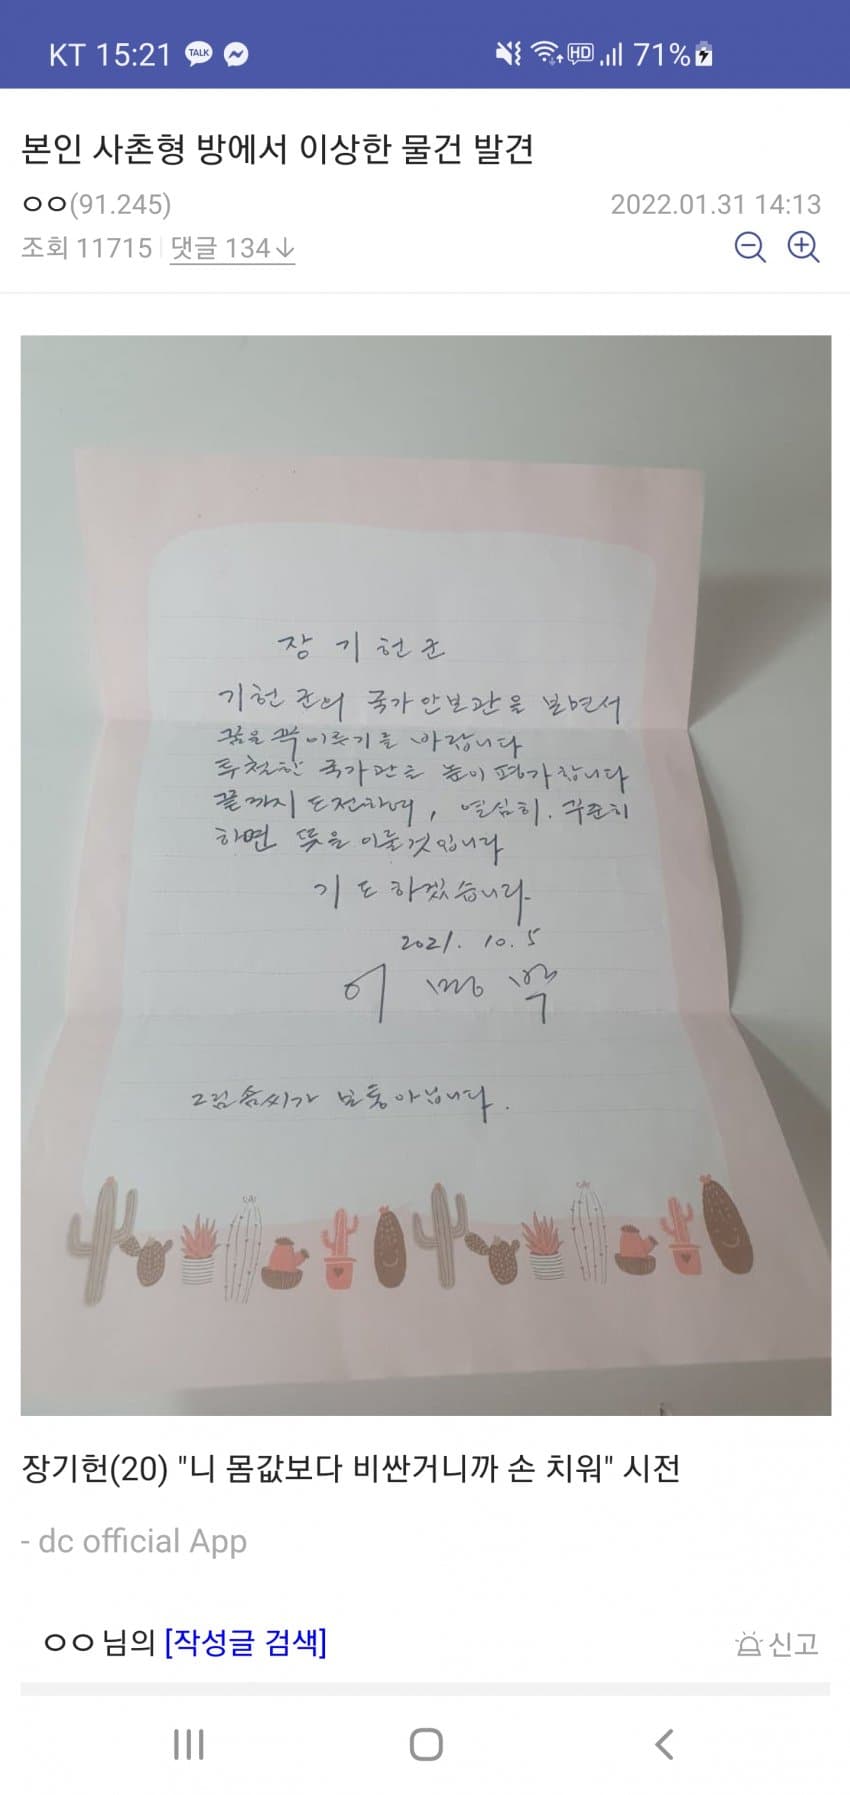 KT 15:21 TALK HD 71%
본인 사촌형 방에서 이상한 물건 발견
ㅇㅇ(91.245) 2022.01.31 14:13
조회 11715 댓글 134↓
장 기 헌 군
기헌 군의 국가안보관을 보면서
꿈을 꼭 이룻기를 바랍니다
투철한 국가관을 높이 평가합니다
끝까지 도전하며, 열심히. 꾸준히
하면 뜻을 이룰것입니다
기도하겠습니다.
2021. 10. 5
이 명 박
그림솜씨가 보통아닙니다.
장기헌(20) "니 몸값보다 비싼거니까 손 치워" 시전
- dc official App
ㅇㅇ 님의 [작성글 검색] 신고